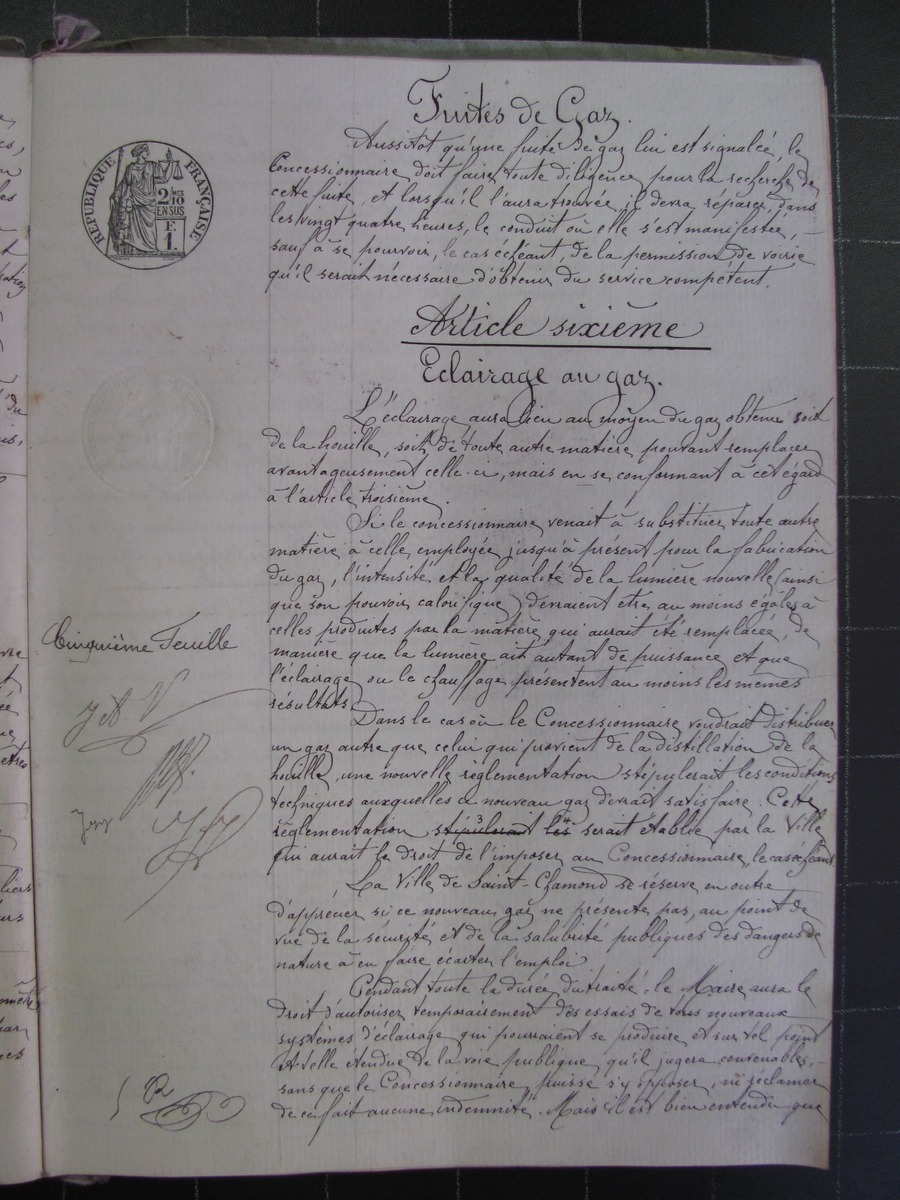 Fuites de Gaz.
Aussitot qu'une fuite de gaz lui est signalée, le
Concessionnaire doit faire toute diligence pour la recherche de
cette fuite, et lorsqu'il l'aura trouvée, il devra réparer, dans
les vingt quatre heures, le conduit où elle s'est manifestée, -
sauf à se pourvoir, le cas échéant, de la permission de voirie
qu'il serait nécessaire d'obtenir du service compétent.
RÉPUBLIQUE FRANÇAISE
2/10 MES
EN SUS
F
1.
Article sixième
Eclairage au gaz.
L'éclairage aura lieu au moyen du gaz obtenu soit
de la houille, soit de toute autre matière pouvant remplacer
avantageusement celle-ci, mais en se conformant à cet égard
à l'article troisième.
Si le concessionnaire venait à substituer toute autre
matière à celle employée jusqu'à présent pour la fabrication
du gaz, l'intensité et la qualité de la lumière nouvelle (ainsi
que son pouvoir calorifique) devraient etre au moins égales à
celles produites par la matière qui aurait été remplacée, de
manière que la lumière ait autant de puissance et que
l'éclairage ou le chauffage présentent au moins les mêmes
résultats.
Cinquième Feuille
Dans le cas où le Concessionnaire voudrait distribuer
un gaz autre que celui qui provient de la distillation de la
houille, une nouvelle règlementation stipulerait les conditions
techniques auxquelles ce nouveau gaz devrait satisfaire. Cette
règlementation stipulerait les serait établie par la Ville
qui aurait le droit de l'imposer au Concessionnaire, le cas échéant
La Ville de Saint-Chamond se réserve en outre
d'apprécier si ce nouveau gaz ne présente pas, au point de
vue de la sécurité et de la salubrité publiques des dangers de
nature à en faire écarter l'emploi
Pendant toute la durée du traité, le Maire aura le
droit d'autoriser temporairement des essais de tous nouveaux
systèmes d'éclairage qui pourraient se produire et sur tel point
et telle étendue de la voie publique qu'il jugera convenables, -
sans que le Concessionnaire puisse s'y opposer, ni réclamer
de ce fait aucune indemnité. Mais il est bien entendu que